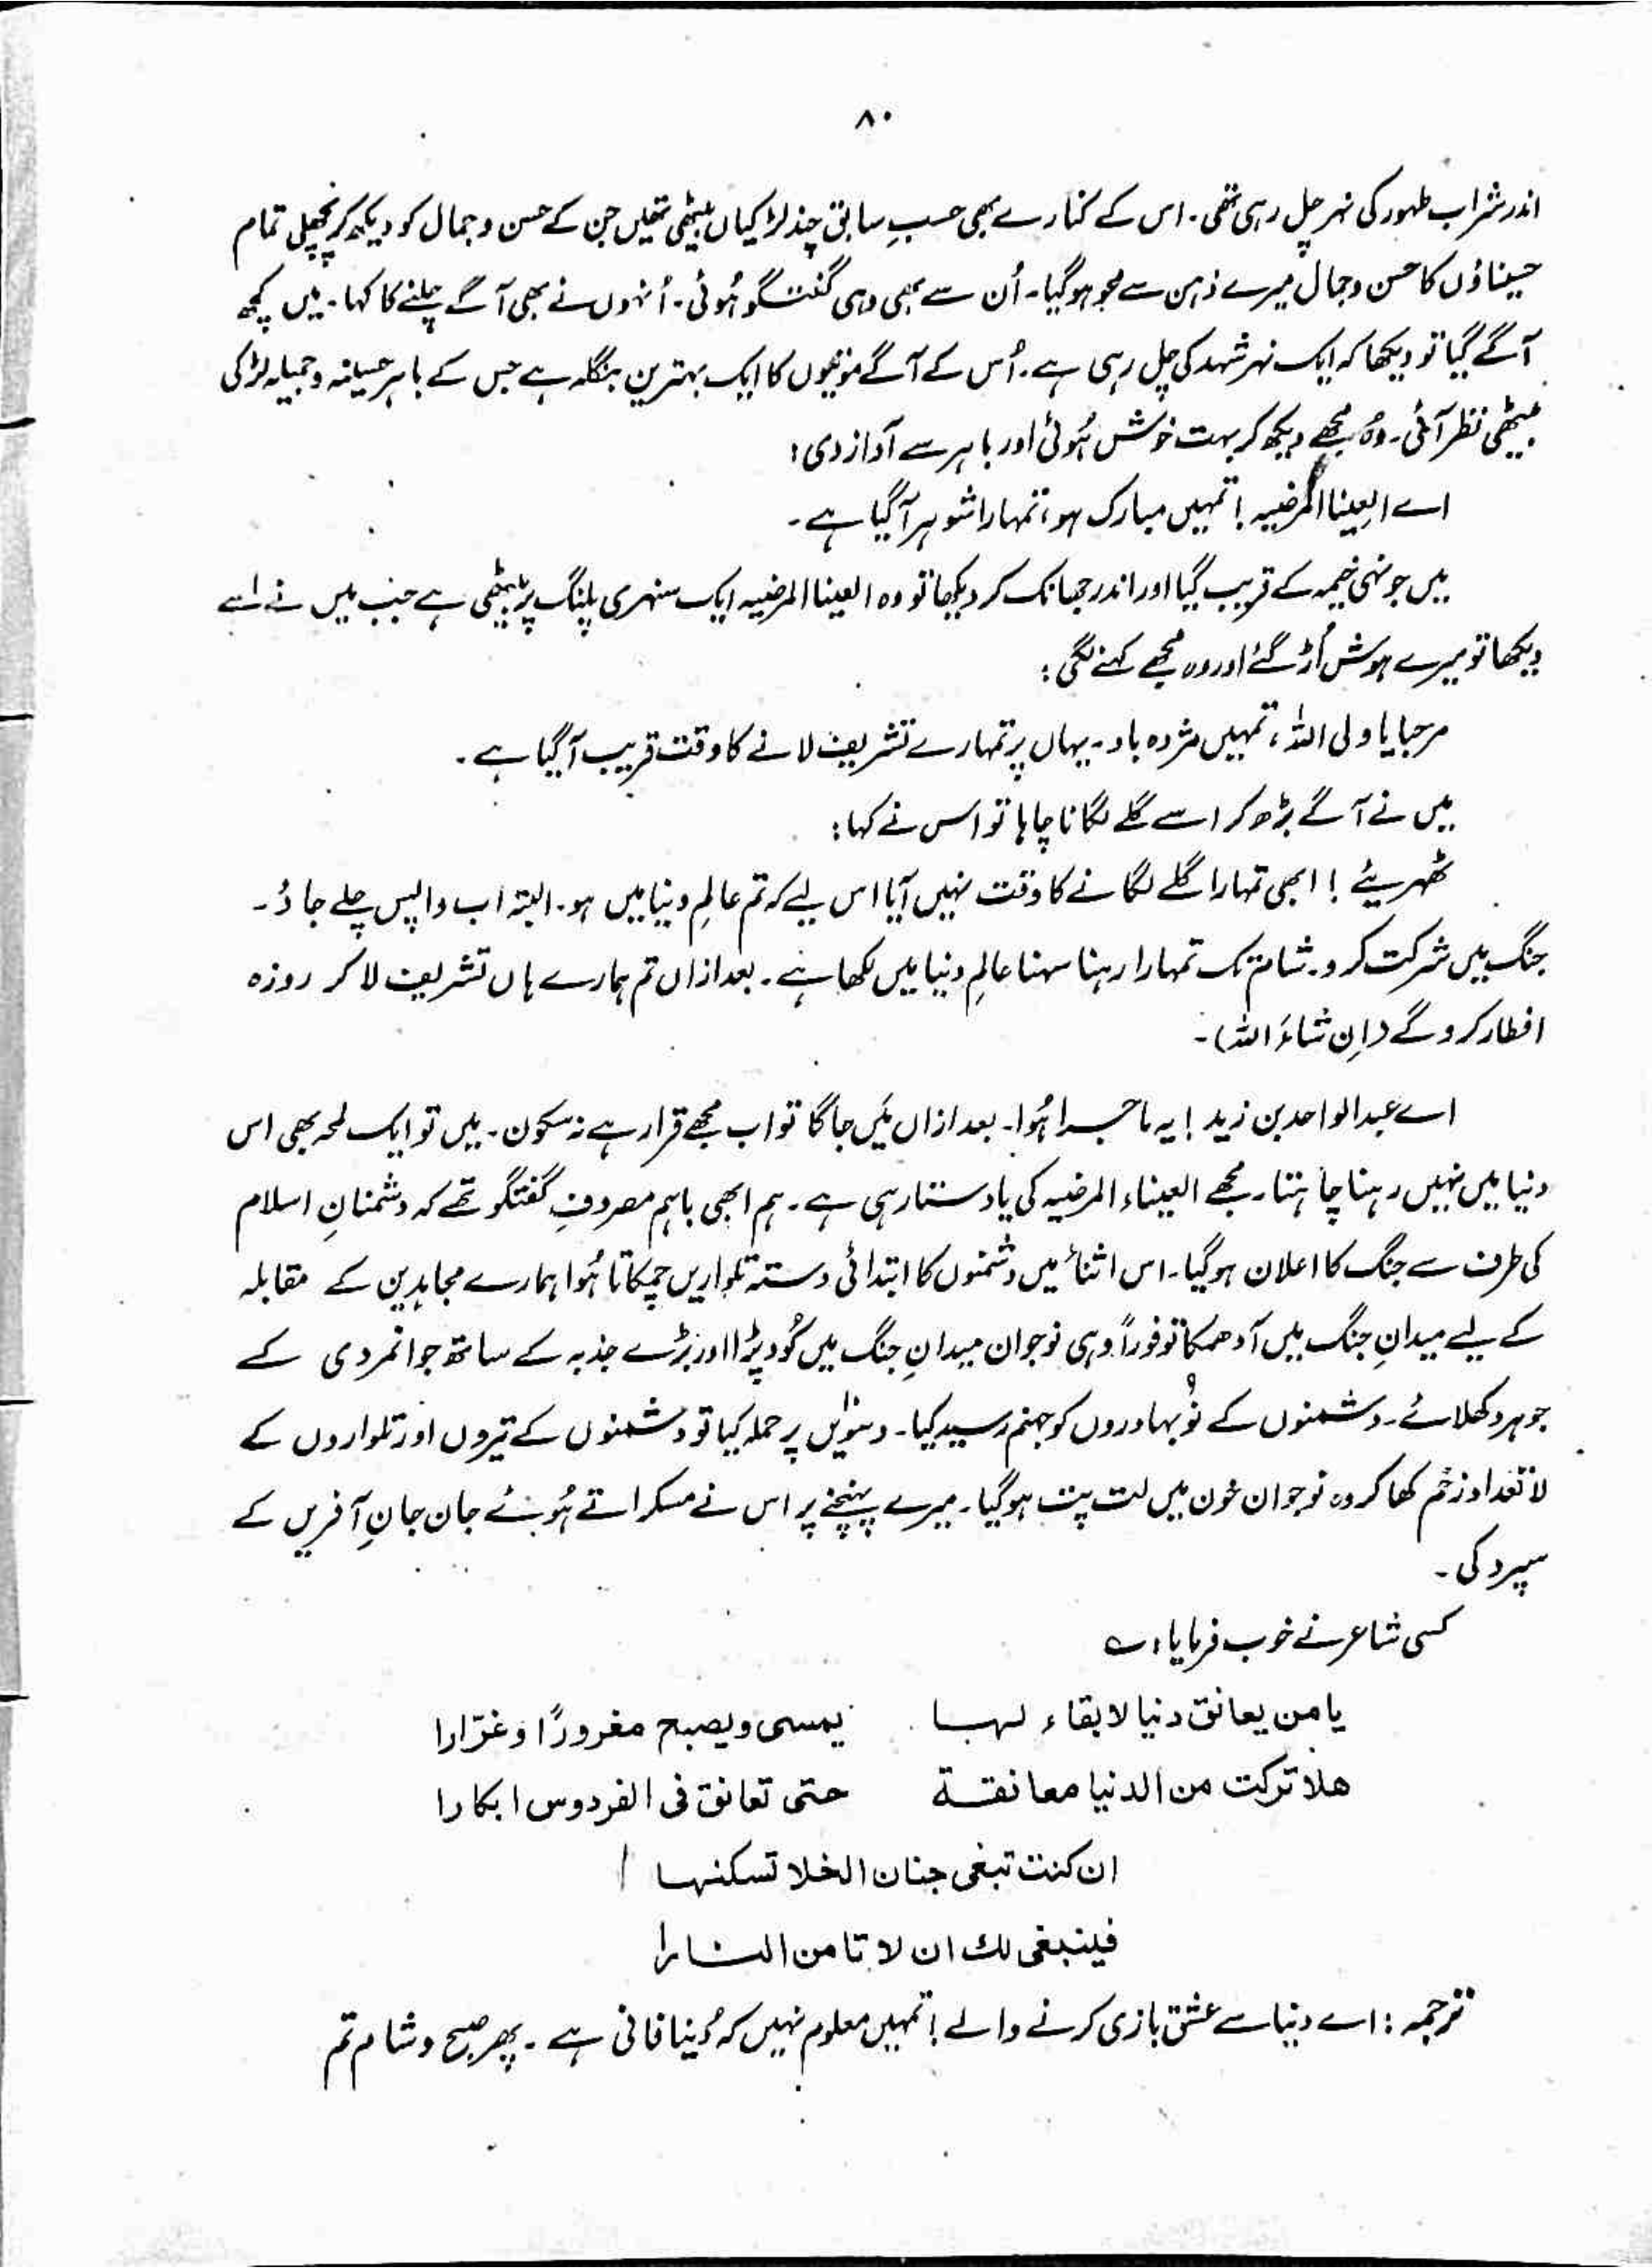 ۸۰
اندر شراب طہور کی نہر چل رہی تھی۔ اس کے کنارے بھی حسبِ سابق چند لڑکیاں بیٹھی تھیں جن کے حسن و جمال کو دیکھ کر پچھلی تمام
حسیناؤں کا حسن و جمال میرے ذہن سے محو ہوگیا۔ اُن سے بھی وہی گفتگو ہُوئی۔ اُنہوں نے بھی آگے چلنے کا کہا۔ میں کچھ
آگے گیا تو دیکھا کہ ایک نہر شہد کی چل رہی ہے۔ اُس کے آگے موتیوں کا ایک بہترین بنگلہ ہے جس کے باہر حسینہ و جمیلہ لڑکی
بیٹھی نظر آئی۔ وُہ مجھے دیکھ کر بہت خوش ہُوئی اور باہر سے آواز دی؛
اے العینا المرضیہ! تمہیں مبارک ہو، تمہارا شوہر آگیا ہے۔
میں جونہی خیمہ کے قریب گیا اور اندر جھانک کر دیکھا تو وہ العینا المرضیہ ایک سنہری پلنگ پر بیٹھی ہے جب میں نے اسے
دیکھا تو میرے ہوش اُڑ گئے اور وہ مجھے کہنے لگی:
مرحبا یا ولی اللہ، تمہیں مژدہ باد۔ یہاں پر تمہارے تشریف لانے کا وقت قریب آگیا ہے۔
میں نے آگے بڑھ کر اسے گلے لگانا چاہا تو اس نے کہا:
ٹھہریئے! ابھی تمہارا گلے لگانے کا وقت نہیں آیا اس لیے کہ تم عالمِ دنیا میں ہو۔ البتہ اب واپس چلے جاؤ۔
جنگ میں شرکت کرو۔ شام تک تمہارا رہنا سہنا عالمِ دنیا میں لکھا ہے۔ بعد ازاں تم ہمارے ہاں تشریف لا کر روزہ
افطار کرو گے (اِن شاءَ اللہ)۔
اے عبدالواحد بن زید! یہ ماجرا ہُوا۔ بعد ازاں مَیں جاگا تو اب مجھے قرار ہے نہ سکون۔ میں تو ایک لمحہ بھی اس
دنیا میں نہیں رہنا چاہتا۔ مجھے العیناء المرضیہ کی یاد ستا رہی ہے۔ ہم ابھی باہم مصروفِ گفتگو تھے کہ دشمنانِ اسلام
کی طرف سے جنگ کا اعلان ہوگیا۔ اس اثناء میں دشمنوں کا ابتدائی دستہ تلواریں چمکاتا ہُوا ہمارے مجاہدین کے مقابلہ
کے لیے میدانِ جنگ میں آدھمکا تو فوراً وہی نوجوان میدانِ جنگ میں کُود پڑا اور بڑے جذبہ کے ساتھ جوانمردی کے
جوہر دکھلائے۔ دشمنوں کے نَو بہادروں کو جہنم رسید کیا۔ دسویں پر حملہ کیا تو دشمنوں کے تیروں اور تلواروں کے
لاتعداد زخم کھا کر وہ نوجوان خون میں لت پت ہوگیا۔ میرے پہنچنے پر اس نے مسکراتے ہُوئے جان جانِ آفریں کے
سپرد کی۔
کسی شاعر نے خوب فرمایا؛ ے
یا من یعانق دنیا لا بقاء لہا یمسی ویصبح مغرورًا وغرّارا
ھلا ترکت من الدنیا معانقة حتی تعانق فی الفردوس ابکارا
ان کنت تبغی جنان الخلا تسکنہا
فینبغی لك ان لا تامن النارا
ترجمہ: اے دنیا سے عشق بازی کرنے والے! تمہیں معلوم نہیں کہ دُنیا فانی ہے۔ پھر صبح و شام تم